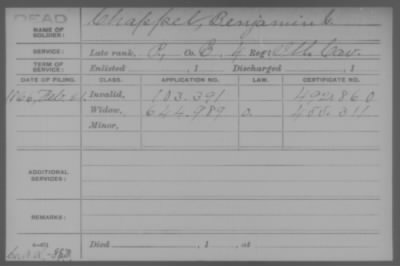 DEAD
NAME OF SOLDIER: Chappel, Benjamin C.
SERVICE: Late rank, P, Co. B, 4 Reg't Ill. Cav.
TERM OF SERVICE: Enlisted , 1 Discharged , 1
DATE OF FILING. CLASS. APPLICATION NO. LAW. CERTIFICATE NO.
1866, Feb. Invalid, 103.391 492860
Widow, 644.989 455.311
Minor,
ADDITIONAL SERVICES:
REMARKS:
Died , 1 , at